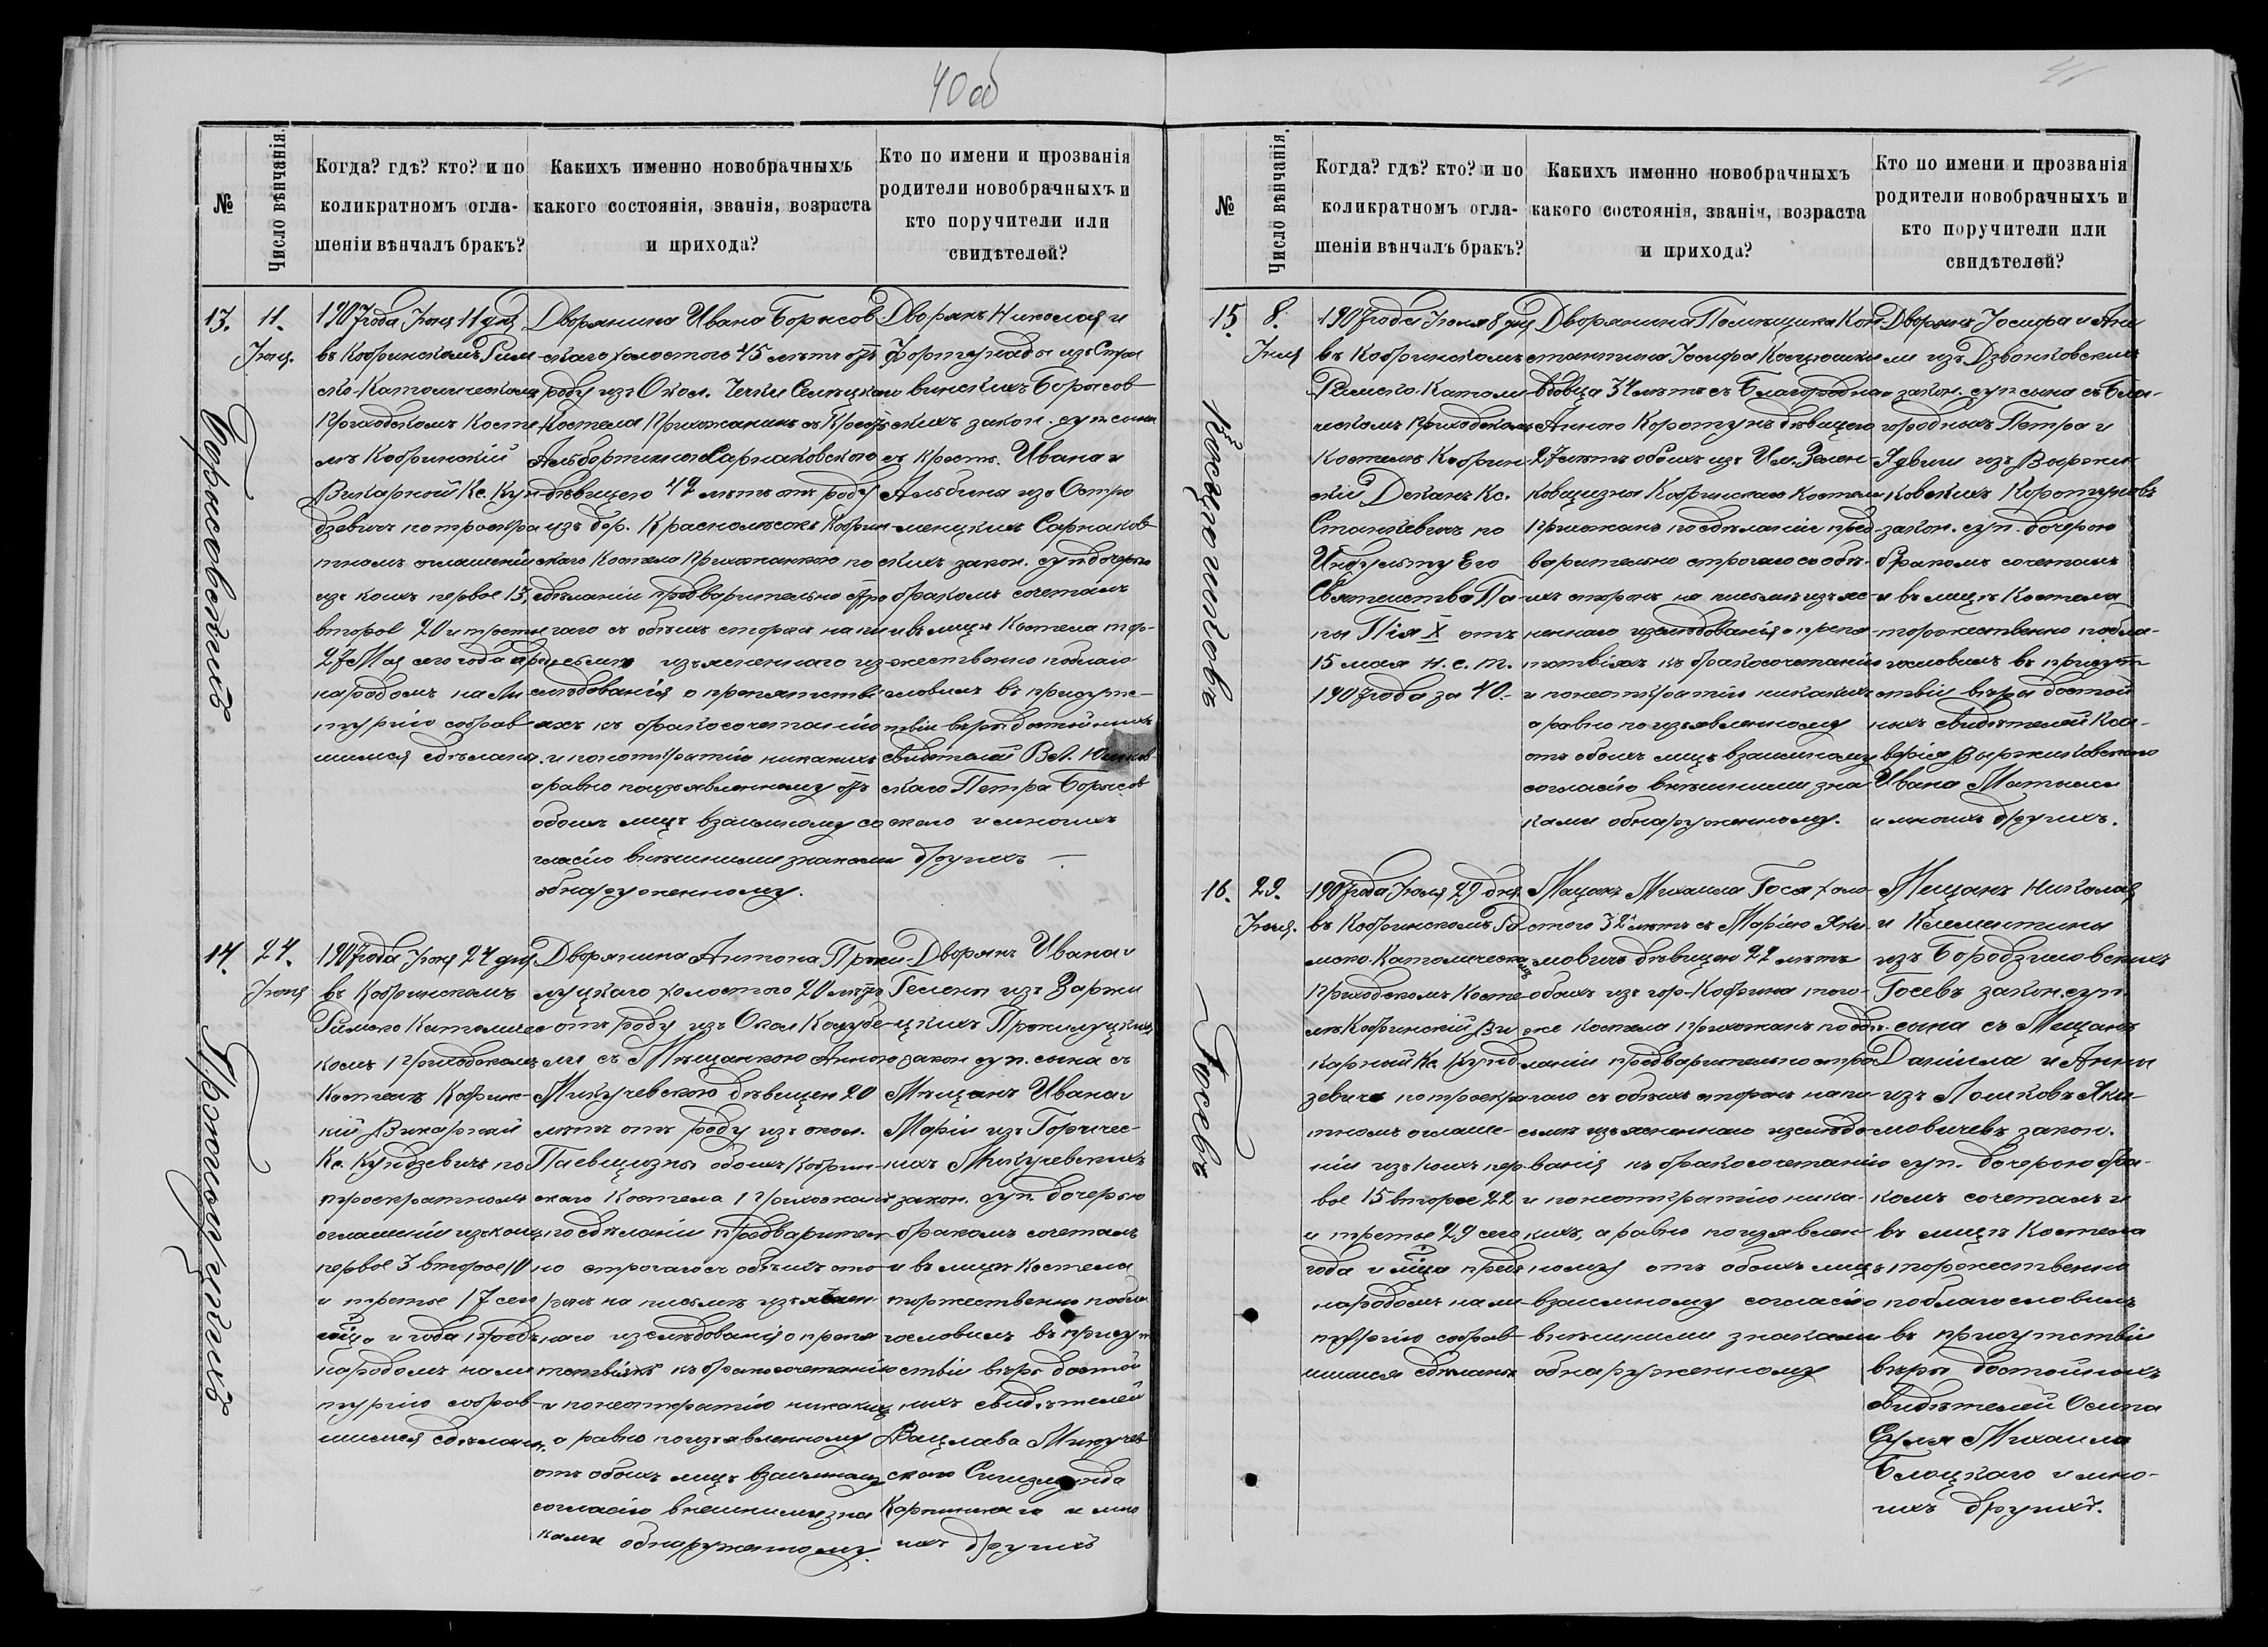 40 об
№
Число вѣнчанія.
Когда? гдѣ? кто? и по
коликратномъ огла-
шеніи вѣнчалъ бракъ?
Какихъ именно новобрачныхъ
какого состоянія, званія, возраста
и прихода?
Кто по имени и прозванія
родители новобрачныхъ и
кто поручители или
свидѣтелей?
13.
11.
Іюня.
Борысовскихъ
1907 года Іюня 11 дня
въ Кобринскомъ Рим
ско-Католическомъ
Приходскомъ Косте
лѣ Кобринскій
Викарный Кс. Кун
дзевичъ по троекра
тномъ оглашеніи
изъ коихъ первое 13,
второе 20 и третье
27 Мая сего года пред
народомъ на Ли
тургію собрав
шимся сдѣланн.
Дворянина Ивана Борысов
скаго холостого 45 лѣтъ отъ
роду изъ Окол. Челки Селецкаго
Костела Прихожанинъ съ Крест.
Альбертиною Сарнаковскою
дѣвицею 42 лѣтъ отъ роду
изъ дер. Краснолѣсокъ Кобрин
скаго Костела Прихожанкою по
сдѣланіи предварительно стро
гаго съ обѣихъ сторонъ на пи
сьмѣ изъясненнаго из
слѣдованія о препятстві
яхъ къ бракосочетанію
и понеоткрытію никакихъ
а равно поизъявленному отъ
обоихъ лицъ взаимному со
гласію внѣшними знаками
обнаруженному.
Дворянъ Николая и
Фортунаты изъ
винскихъ Борысов
скихъ закон. суп сына
съ крест. Ивана и
Альбины изъ Остро
менцкихъ Сарнаков
скихъ закон. суп дочерью
бракомъ сочеталъ
и въ лицѣ Костела тор-
жественно поблаго
словилъ въ присутс-
твіи вѣры достойныхъ
свидѣтелей Вел.
скаго Петра Борысов
скаго и многихъ
другихъ —
14.
24.
Іюня
Пржилуцкихъ
1907 года Іюня 24 дня
въ Кобринскомъ
Римско Католичес
комъ Приходскомъ
Костелѣ Кобринс-
кій Викарный
Кс. Кундзевичъ по
троекратномъ
оглашеніи изъ коихъ
первое 3 второе 10
и третье 17 сего
мѣсца и года предъ
народомъ на ли
тургію собрав-
шимся сдѣланн.
Дворянина Антона Пржи
луцкаго холостого 20 лѣтъ
отъ роду изъ Окол Козубе-
ли съ Мѣщанкою Анною
Микучевскою дѣвицею 20
лѣтъ отъ роду изъ окол.
Паевщизны обоихъ Кобрин
скаго Костела Прихожанъ
по сдѣланіи предварител
но строгаго съ обѣихъ сто
ронъ на письмѣ изъяснен-
наго изслѣдованія о препя
тствіяхъ къ бракосочетанію
и понеоткрытію никакихъ
а равно поизъявленному
отъ обоихъ лицъ взаимному
согласію внѣшними зна
ками обнаруженному.
Дворянъ Ивана и
Гелены изъ Заржи
цкихъ Пржилуцкихъ
закон суп. сына съ
Мѣщанъ Ивана и
Маріи изъ Горичес-
кихъ Микучевскихъ
закон. суп. дочерью
бракомъ сочеталъ
и въ лицѣ Костела
торжественно побла
гословилъ въ присут
ствіи вѣры достой
ныхъ свидѣтелей
Вацлава Микучев
скаго Сигизмунда
Карпинскаго и мно
ихъ другихъ
41
№
Число вѣнчанія.
Когда? гдѣ? кто? и по
коликратномъ огла-
шеніи вѣнчалъ бракъ?
Какихъ именно новобрачныхъ
какого состоянія, званія, возраста
и прихода?
Кто по имени и прозванія
родители новобрачныхъ и
кто поручители или
свидѣтелей?
15.
8.
Іюля
Косцюшковъ
1907 года Іюля 8 дня
въ Кобринскомъ
Римско-Католи
ческомъ Приходскомъ
Костелѣ Кобрин
скій Деканъ Кс.
Станкевичъ по
Индульту Его
Святейства Па-
пы Пія X отъ
15 мая н. с. т.
1907 года за 40.-
Дворянина Помѣщика Кон
стантина Іосифа Косцюшки
вдовца 34 лѣтъ съ Благородною
Анною Коротунъ дѣвицею
27 лѣтъ обоихъ изъ Им. Зелен-
коващизна Кобринскаго Костела
прихожанъ по сдѣланіи пред-
варительно строгаго съ обѣ-
ихъ сторонъ на письмѣ изъяс-
неннаго изслѣдованія о препя-
тствіяхъ къ бракосочетанію
и понеоткрытію никакихъ
а равно поизъявленному
отъ обоихъ лицъ взаимному
согласію внѣшними зна
ками обнаруженному.
Дворянъ Іосифа и Ане
ли изъ Дзвонковскихъ
закон. суп сына съ Бла-
городныхъ Петра и
Ядвиги изъ Выржи
ковскихъ Коротуновъ
закон. суп. дочерью
бракомъ сочеталъ
и въ лицѣ Костела
торжественно побла-
гословилъ въ присут
ствіи вѣры достой
ныхъ свидѣтелей
Выржиковскаго
Ивана
и многихъ другихъ.
16.
29.
Іюля.
Госевъ
1907 года Іюля 29 дня
въ Кобринскомъ Ри
мско-Католическомъ
Приходскомъ Косте
лѣ Кобринскій Ви
карный Кс. Кунд
зевичъ по троекра
тномъ оглаше-
ніи изъ коихъ пер
вое 15 второе 22
и третье 29 сего
года и мѣсца предъ
народомъ на ли-
тургію собрав-
шимся сдѣланн
Мѣщанъ Михаила Гося холо-
стого 32 лѣтъ съ Маріею Яки-
мовичъ дѣвицею 22 лѣтъ
обоихъ изъ гор. Кобрина того-
же костела прихожанъ по сдѣ-
ланіи предварительно стро
гаго съ обѣихъ сторонъ на пи-
сьмѣ изъясненнаго изслѣдо
ванія къ бракосочетанію
и понеоткрытію ника-
кихъ, а равно поизъявлен-
ному отъ обоихъ лицъ
взаимному согласію
внѣшними знаками
обнаруженному
Мѣщанъ Николая
и Клементины
изъ Бородзиловскихъ
Госевъ закон. суп.
сына съ Мѣщанъ
Даніила и Анны
изъ Яки
мовичевъ закон.
суп. дочерью бра-
комъ сочеталъ и
въ лицѣ Костела
торжественно
поблагословилъ
въ присутствіи
вѣры достойныхъ
свидѣтелей Осипа
Михаила
Блоцкаго и мно-
гихъ другихъ.